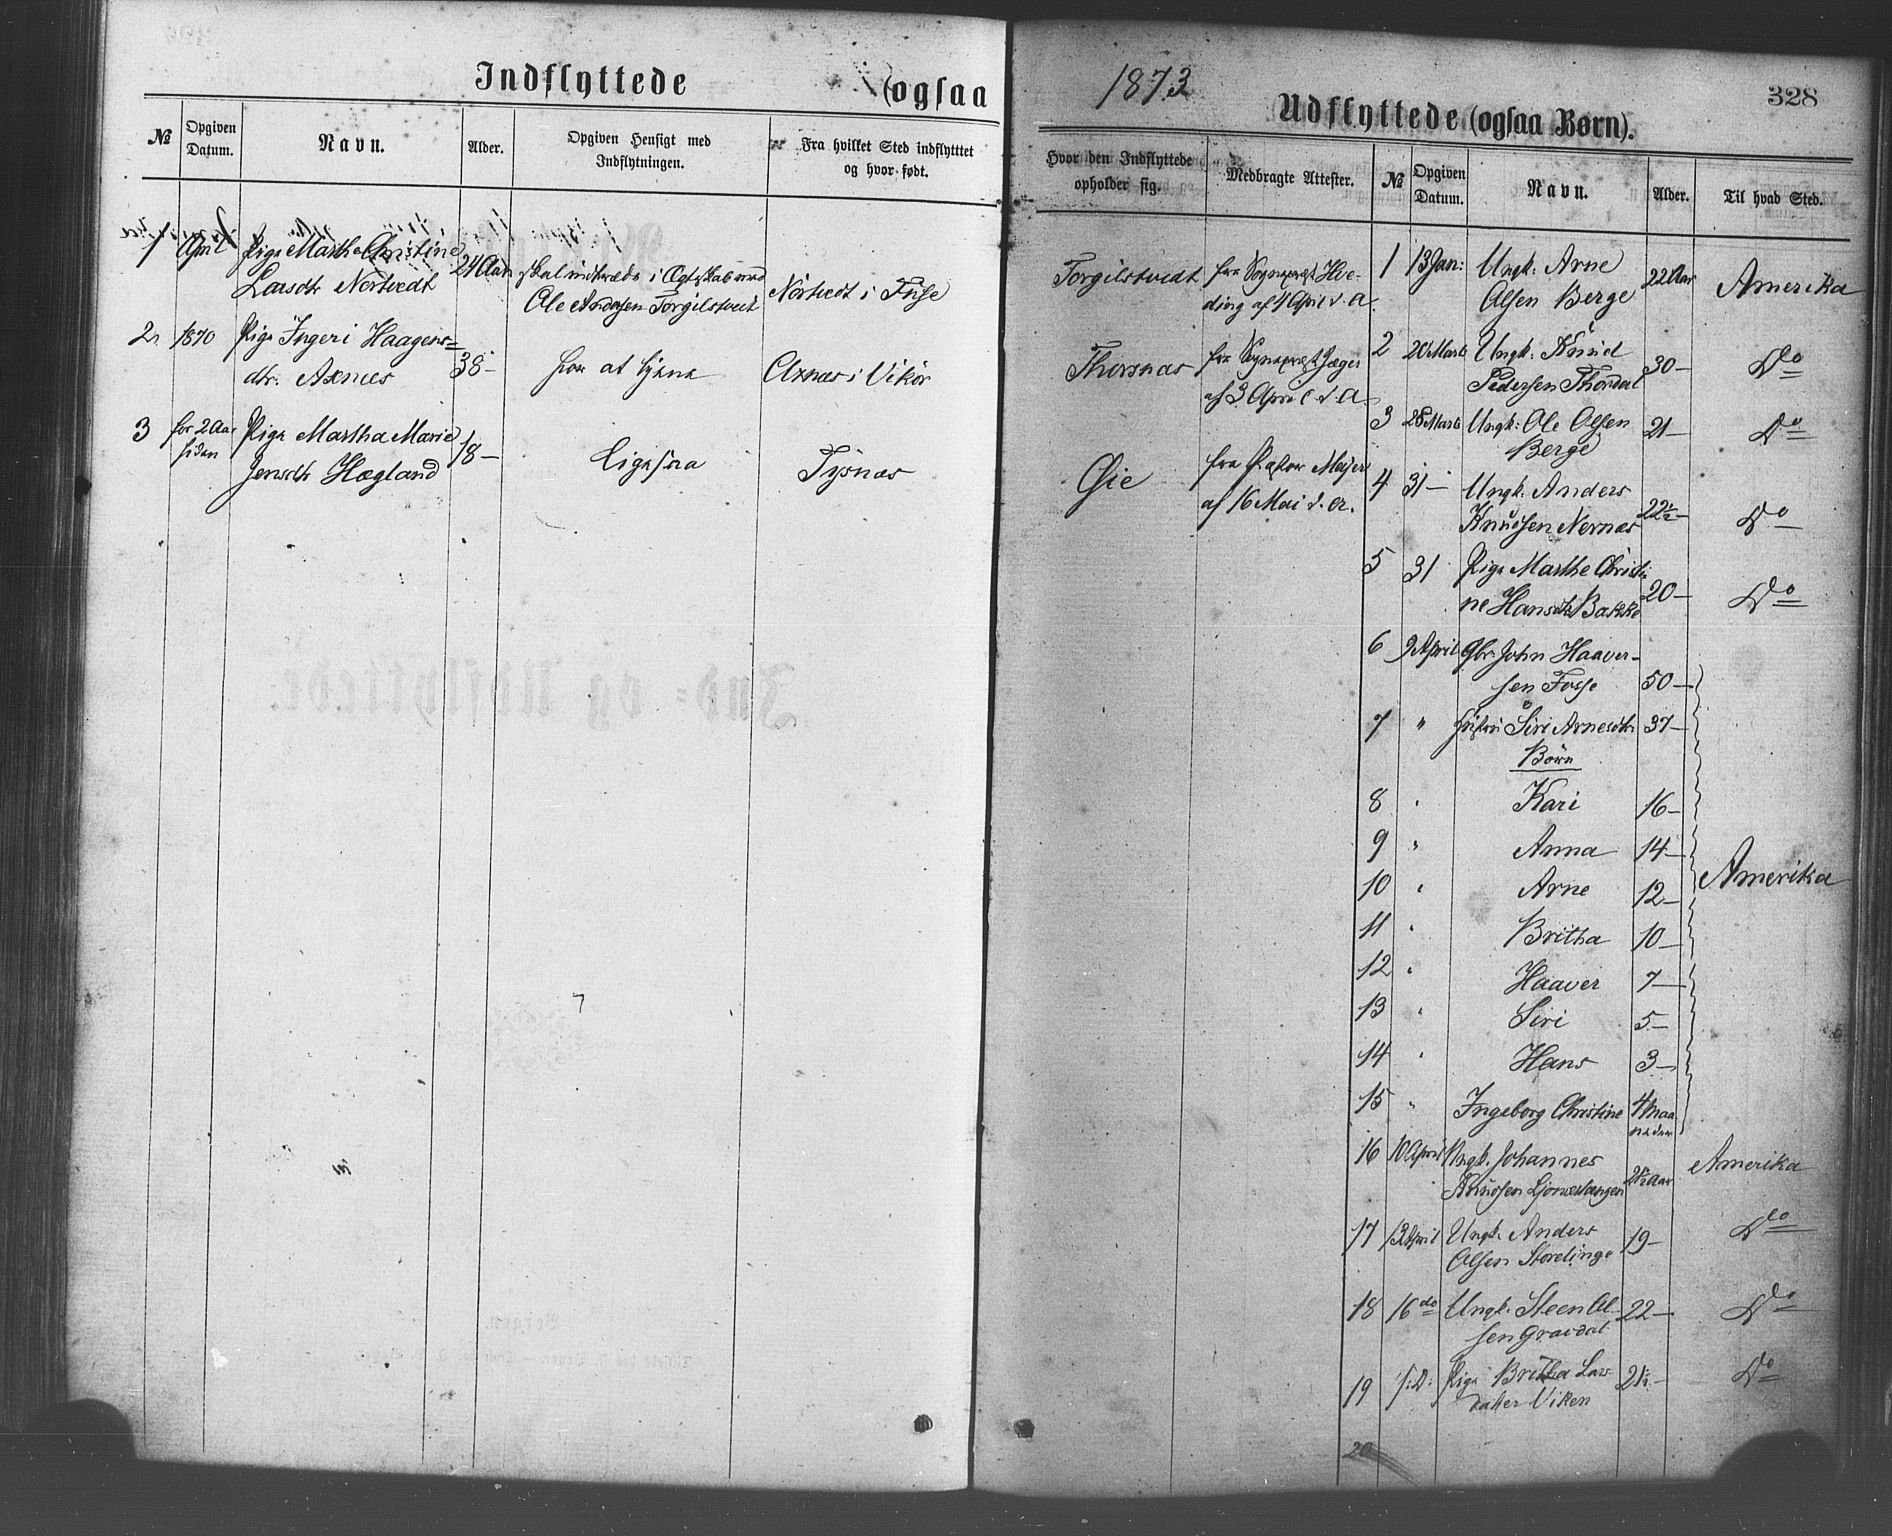 Indflyttede (ogsaa
1873
328
Udflyttede (ogsaa Børn).
№ Opgiven Datum. Navn. Alder. Opgiven Hensigt med Indflytningen. Fra hvilket Sted indflytttet og hvor født.
Hvor den Indflyttede opholder sig. Medbragte Attester. № Opgiven Datum. Navn. Alder. Til hvad Sted.
1 April Pige Martha Christine 24 Aar skal indtræde i Ægteskab med
Larsdtr Nortvedt Ole Andersen Torgilstvedt Nortvedt i Fuse
Torgilstvedt fra Sognepræst
ding af 4 April d. A.
2 1870 Pige Ingeri Haagens=
dtr. Axnes 38 – for at tjene Axnes i Vikør
Thorsnæs fra Sognepræst Jæger
af 3 April d. A.
3 for 2 Aar Pige Martha Marie 18 –
siden Jensdtr Hægland Ligesaa Tysnæs
Øie fra Pastor Meyer
af 16 Mai d. A.
1 13 Jan: Ungk: Arne 22 Aar Amerika
Olsen Berge
2 20 Marts Ungk: Knud 30 – Do
Pedersen Thordal
3 28 Marts Ungk: Ole Olsen 21 – Do
Berge
4 31 – Ungk: Anders 22½ – Do
Knudsen Nernæs
5 31 Pige Marthe Christi 20 – Do
ne Hansdtr Bakke
6 9 April Gbr: John Haaver-
sen Fosse 50 –
7 " Hustru Siri Arnesdtr 37 –
Børn
8 " Kari 16 –
9 " Anna 14 –
10 " Arne 12 – Amerika
11 " Britha 10 –
12 " Haaver 7 –
13 " Siri 5 –
14 " Hans 3 –
15 " Ingeborg Christine 4 Maa
neder
16 10 April Ungk. Johannes Amerika
Knudsen Ljonestangen Aar
17 13 April Ungk. Anders 19 – Do
Olsen Storelinge
18 16 do Ungk. Steen Ol 22 – Do
sen Gravdal
19 Pige Britha Lars 21½ – Do
datter Viken
20